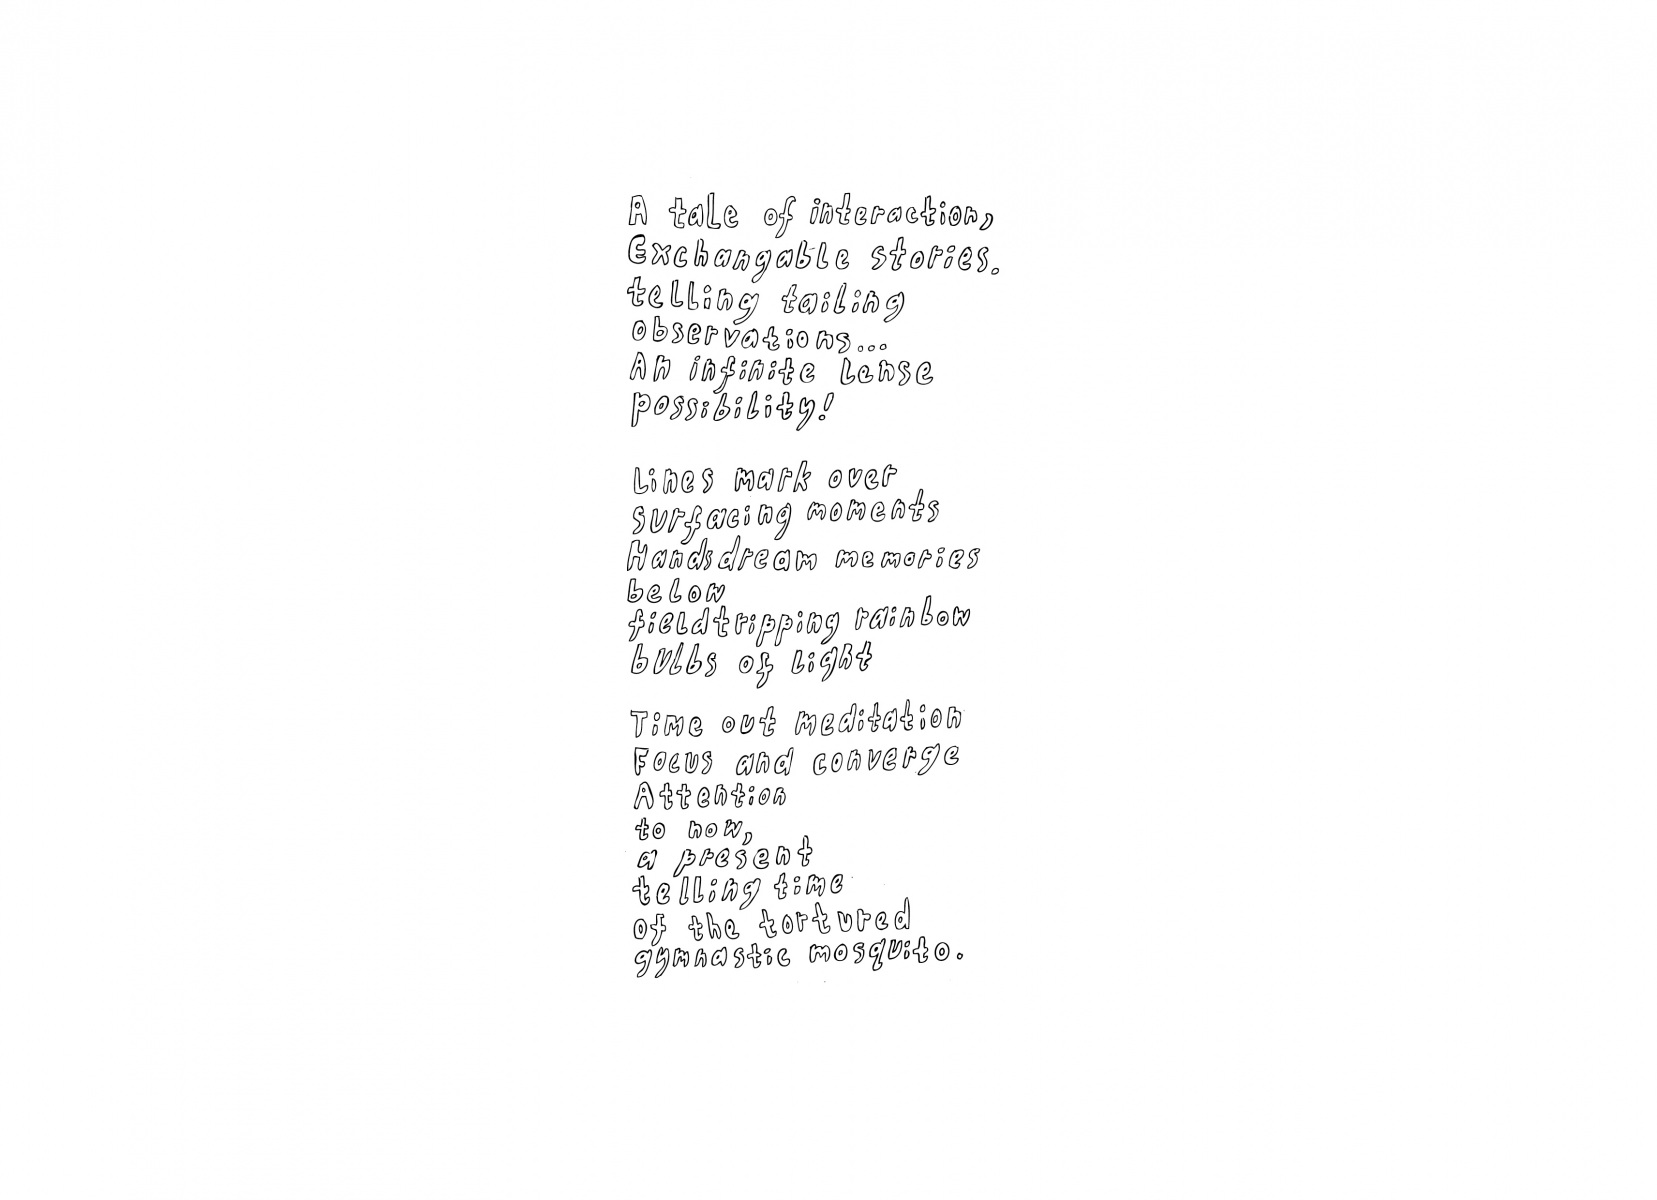 A tale of interaction,
Exchangable stories.
telling tailing
observations...
An infinite Lense
possibility!
Lines mark over
surfacing moments
Hands dream memories
below
fieldtripping rainbow
bulbs of light
Time out meditation
Focus and converge
Attention
to now,
a present
telling time
of the tortured
gymnastic mosquito.